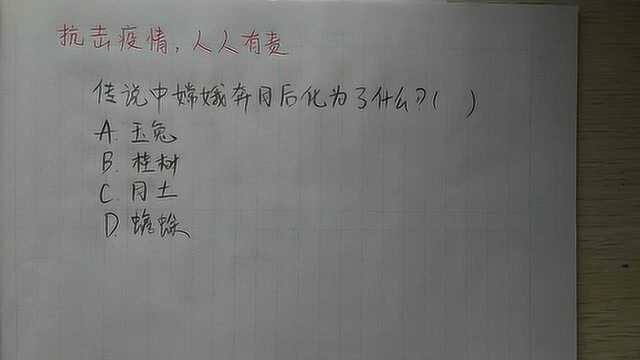 抗击疫情，人人有责
传说中嫦娥奔月后化为了什么?( )
A. 玉兔
B. 桂树
C. 月土
D. 蟾蜍